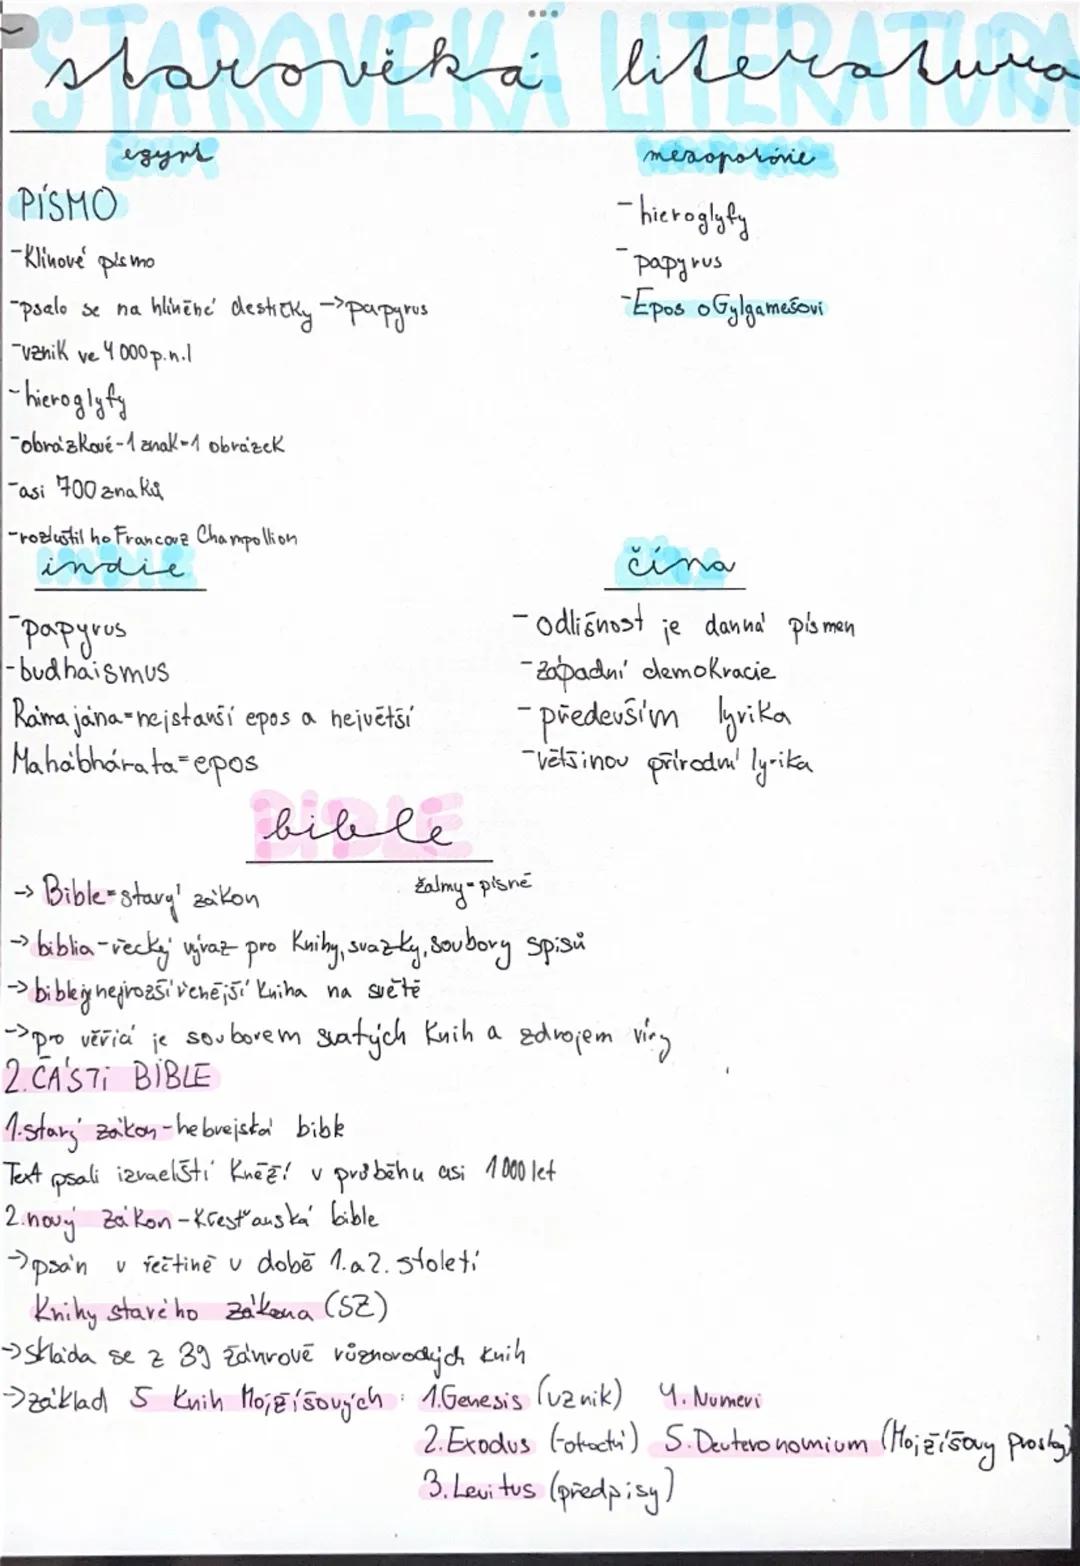 STAROVĚKÁ LITERATURA
starověká literatura
egypt
PÍSMO
-Klínové písmo
-psalo se na hliněné destičky ->papyrus
-vznik ve 4000 p.n.l
-hieroglyfy
-obrázkové-1 znak=1 obrázek
-asi 700 znaků
-rozluštil ho Francouz Champollion
mezopotánie
-hieroglyfy
-papyrus
-Epos o Gylgamešovi
indie
-papyrus
-budhaismus
Rámajána=nejstarší epos a největší
Mahábhárata=epos
čína
-odlišnost je danná písmen
-západní demokracie
-především lyrika
-většinou přírodní lyrika
BIBLE
bible
-> Bible=starý zákon
žalmy=písně
->biblia-řecký výraz pro Knihy, svazky, soubory spisů
->bible je nejrozšířenější Kniha na světě
->pro věřící je souborem svatých Knih a zdrojem víry
2.ČÁSTi BiBLE
1.starý zákon-hebrejská bible
Text psali izraelští Kněží v průběhu asi 1000 let
2.nový zákon-Křesťanská bible
->psán v řečtině v době 1. a 2. století
Knihy starého zákona (SZ)
->Skládá se z 39 žánrově různorodých knih
->základ 5 Knih Mojžíšových: 1.Genesis (vznik) 4. Numeri
2.Exodus 5.Deuteronomium (Mojžíšovy prosby)
3.Levitus (předpisy)